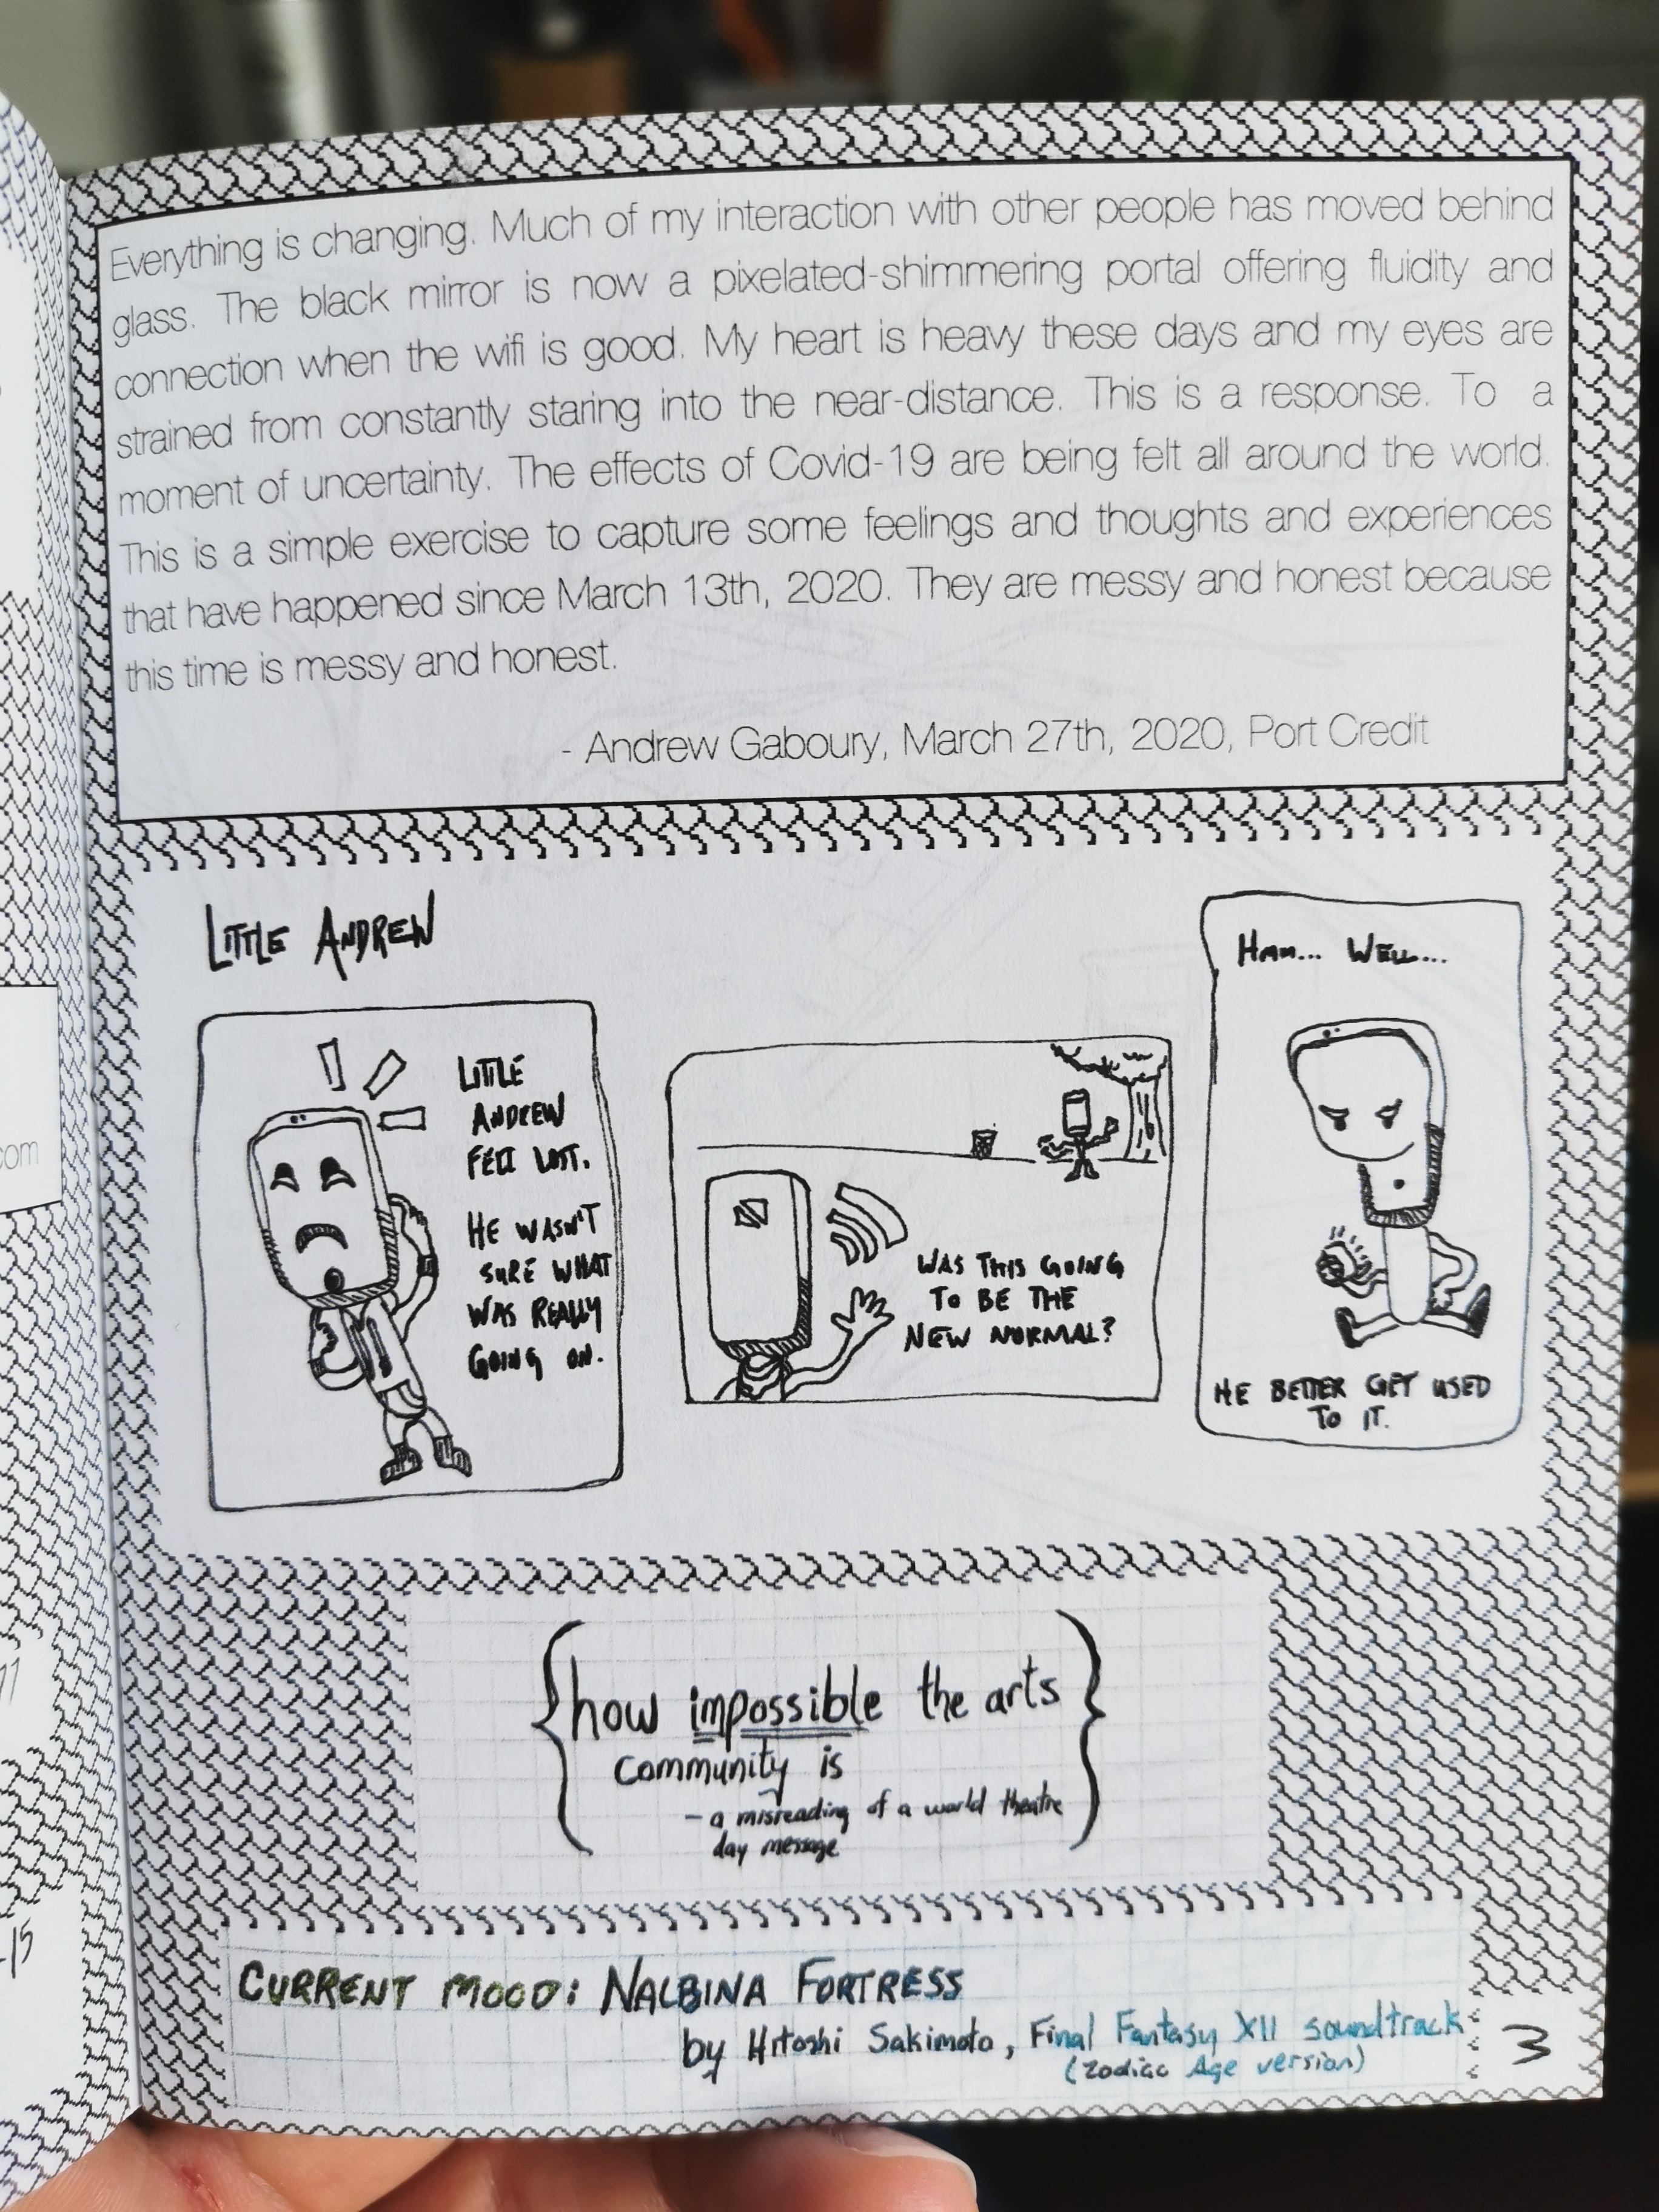 Everything is changing. Much of my interaction with other people has moved behind
glass. The black mirror is now a pixelated-shimmering portal offering fluidity and
connection when the wifi is good. My heart is heavy these days and my eyes are
strained from constantly staring into the near-distance. This is a response. To a
moment of uncertainty. The effects of Covid-19 are being felt all around the world.
This is a simple exercise to capture some feelings and thoughts and experiences
that have happened since March 13th, 2020. They are messy and honest because
this time is messy and honest.
- Andrew Gaboury, March 27th, 2020, Port Credit
LITTLE ANDREW
LITTLE
ANDREW
FELT LOST.
HE WASN'T
SURE WHAT
WAS REALLY
GOING ON.
WAS THIS GOING
TO BE THE
NEW NORMAL?
HMM... WELL...
HE BETTER GET USED
TO IT.
how impossible the arts
community is
- a misreading of a world theatre
day message
CURRENT MOOD: NALBINA FORTRESS
by Hitoshi Sakimoto, Final Fantasy XII soundtrack
(Zodiac Age version)
3
com
-15